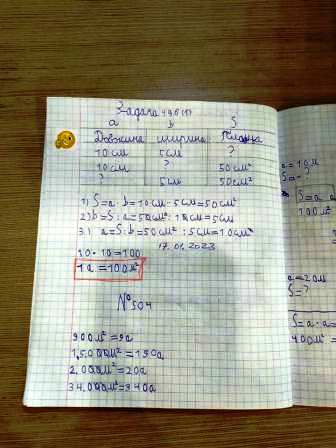 Задача 495(1)
a b S
Довжина ширина Площа
10см 5см ?
10см ? 50см²
? 5см 50см²
1) S=a·b=10см·5см=50см²
2) b=S:a=50см²:10см=5см
3.) a=S:b=50см²:5см=10см
17.01.2023
10·10=100
1a=100м²
№504
900м²=9a
1,5.000м²=150a
2.000м²=20a
34.000м²=340a
a=10м
S=?
S=a
100м²
a=20м
S=?
S=a·a=
400м²=